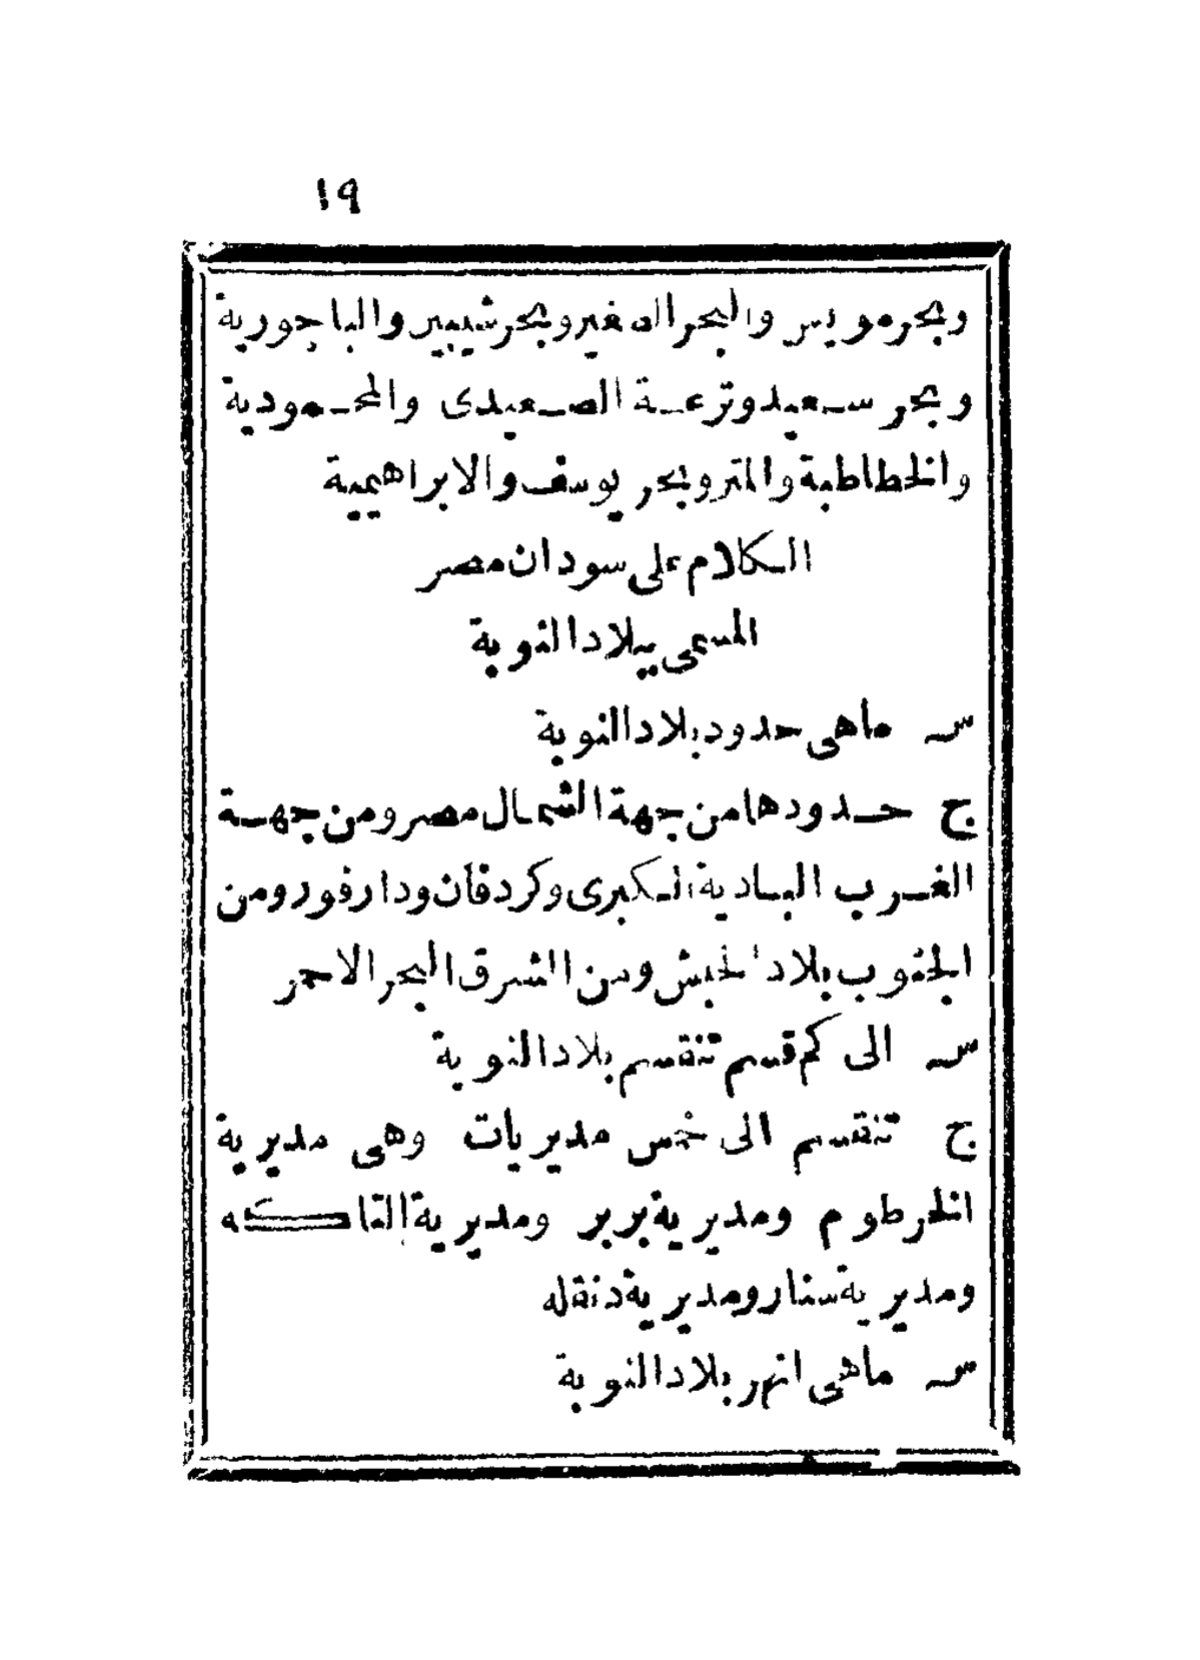 ١٩
وبحر مويس والبحر الصغير وبحر شيبين والباجورية
وبحر سعيد وترعة الصعيدى والمحمودية
والخطاطبة والمتر وبحر يوسف والابراهيمية
الكلام على سودان مصر
المسمى ببلاد النوبة
س ماهى حدود بلاد النوبة
ج حدودها من جهة الشمال مصر ومن جهة
الغرب البادية الكبرى وكردفان ودارفور ومن
الجنوب بلاد الحبش ومن الشرق البحر الاحمر
س الى كم قسم تنقسم بلاد النوبة
ج تنقسم الى خمس مديريات وهى مديرية
الخرطوم ومديرية بربر ومديرية التاكه
ومديرية سنار ومديرية دنقله
س ماهى انهر بلاد النوبة